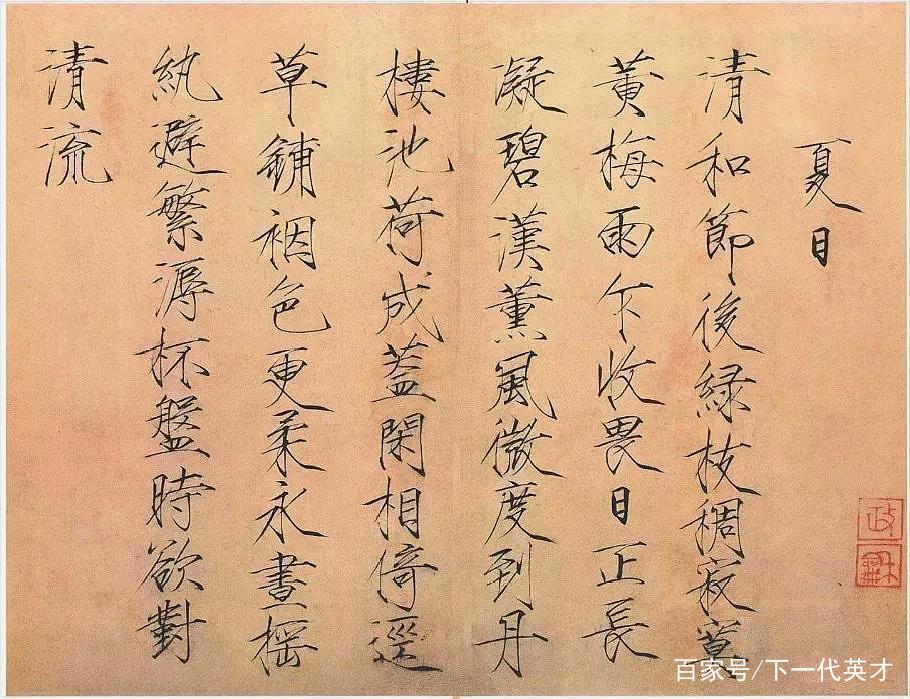 夏日
清和節後緑枝稠寂寞
黄梅雨乍收畏日正長
凝碧漢薰風微度到丹
樓池荷成蓋閑相倚逕
草鋪裀色更柔永晝揺
紈避繁溽杯盤時欲對
清流
政
龢
百家号/下一代英才